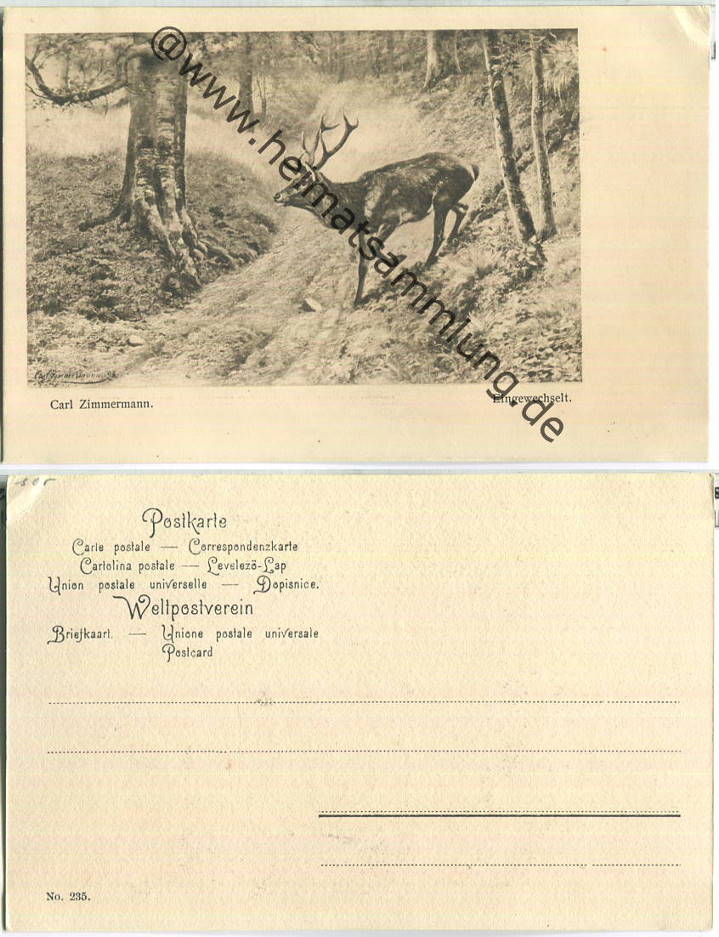 @www.heimatsammlung.de
Carl Zimmermann.
Eingewechselt.
Postkarte
Carte postale — Correspondenzkarte
Cartolina postale — Levelező-Lap
Union postale universelle — Dopisnice.
Weltpostverein
Briefkaart. — Unione postale universale
Postcard
No. 235.